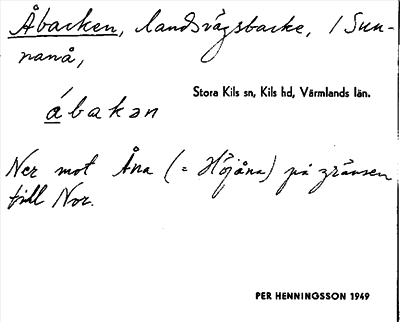 Åbacken, landsvägsbacke, i Sun-
nanå,
Stora Kils sn, Kils hd, Värmlands län.
ábakən
Ner mot Åna (= Höjåna) på gränsen
till Nor.
PER HENNINGSSON 1949